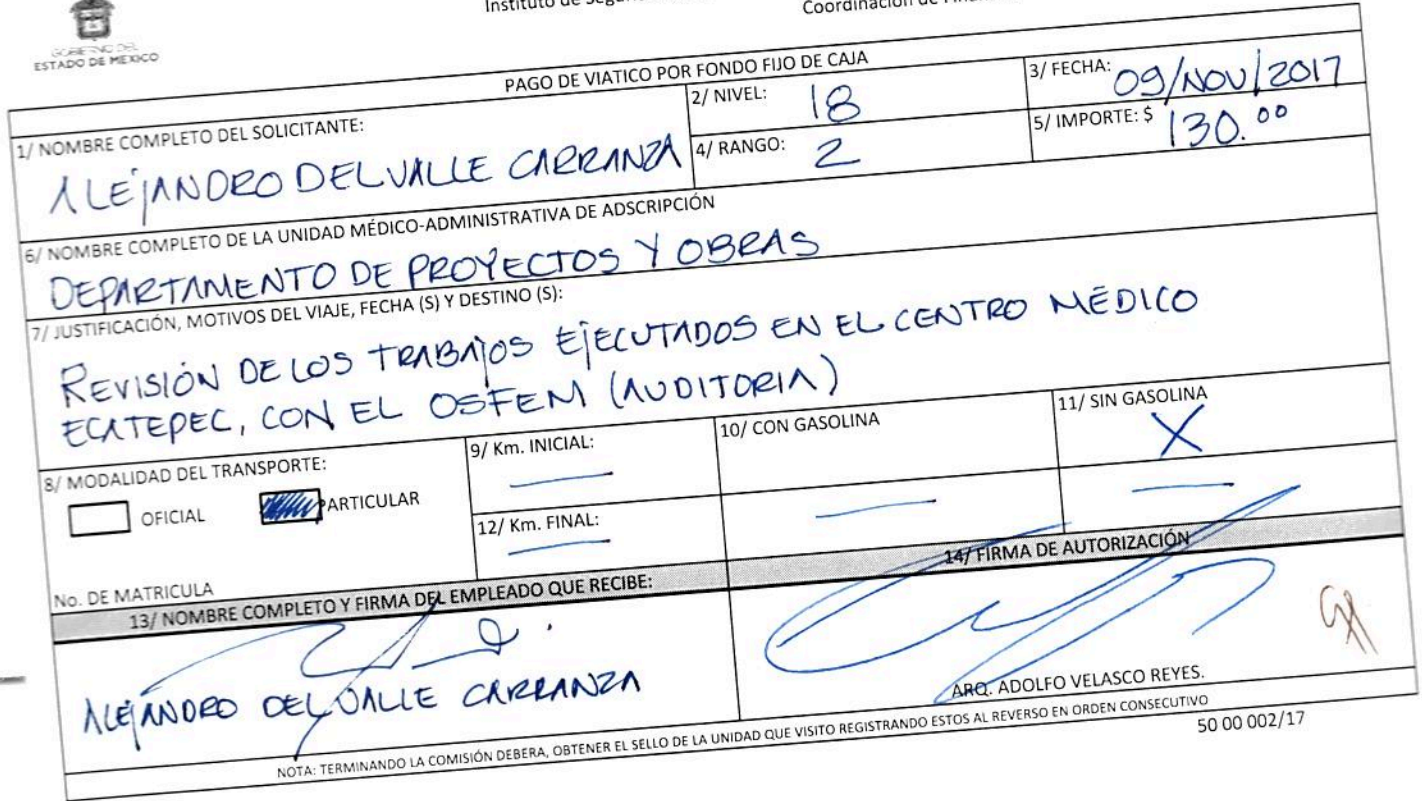 GOBIERNO DEL
ESTADO DE MÉXICO
Instituto de
Coordinación de
PAGO DE VIATICO POR FONDO FIJO DE CAJA
1/ NOMBRE COMPLETO DEL SOLICITANTE:
ALEJANDRO DEL VALLE CARRANZA
2/ NIVEL: 18
3/ FECHA: 09/NOV/2017
4/ RANGO: 2
5/ IMPORTE: $ 130.00
6/ NOMBRE COMPLETO DE LA UNIDAD MÉDICO-ADMINISTRATIVA DE ADSCRIPCIÓN
DEPARTAMENTO DE PROYECTOS Y OBRAS
7/ JUSTIFICACIÓN, MOTIVOS DEL VIAJE, FECHA (S) Y DESTINO (S):
REVISIÓN DE LOS TRABAJOS EJECUTADOS EN EL CENTRO MÉDICO
ECATEPEC, CON EL OSFEM (AUDITORIA)
8/ MODALIDAD DEL TRANSPORTE:
OFICIAL PARTICULAR
No. DE MATRICULA
9/ Km. INICIAL:
—
12/ Km. FINAL:
—
10/ CON GASOLINA
—
11/ SIN GASOLINA
X
—
13/ NOMBRE COMPLETO Y FIRMA DEL EMPLEADO QUE RECIBE:
ALEJANDRO DEL VALLE CARRANZA
14/ FIRMA DE AUTORIZACIÓN
ARQ. ADOLFO VELASCO REYES.
NOTA: TERMINANDO LA COMISIÓN DEBERA, OBTENER EL SELLO DE LA UNIDAD QUE VISITO REGISTRANDO ESTOS AL REVERSO EN ORDEN CONSECUTIVO
50 00 002/17